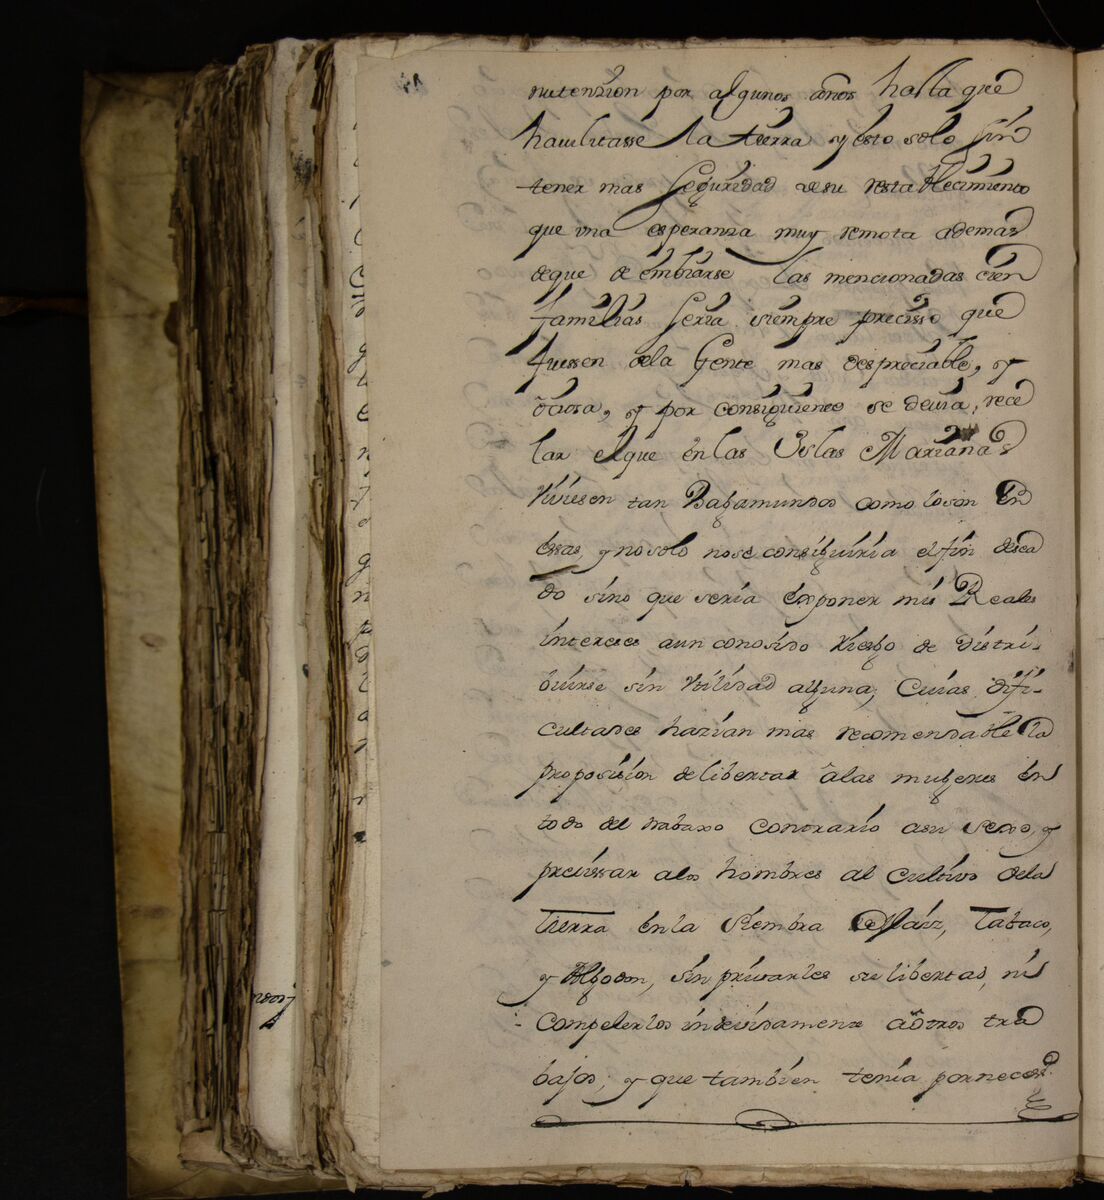 nutenzion por algunos años hasta que
havilitasse la tierra y esto solo sin
tener mas seguridad de su restablecimiento
que una esperanza muy remota ademas
deque de embiarse las mencionadas cien
familias seria siempre precisso que
fuessen dela Gente mas despreciable, y
ôciosa, y por consiguiente se devia rece
lar elque en las Yslas Marianas
viviesen tan Bagamundos como loson en
essas, y nosolo nose conseguiria el fin desea
do sino que seria exponer mis Reales
intereses aun conosido riesgo de distri-
buirse sin utilidad alguna; Cuias difi-
cultades hazian mas recomendable la
proposision de libertar âlas mugeres en
todo del trabaxo contrario asu sexo, y
precissar alos hombres al cultivo dela
tierra en la siembra de Maiz, tabaco,
y Algodon, sin privarles su libertad, ni
compelerlos indevidamente aôtros tra
bajos; y que tambien tenia por neces.º